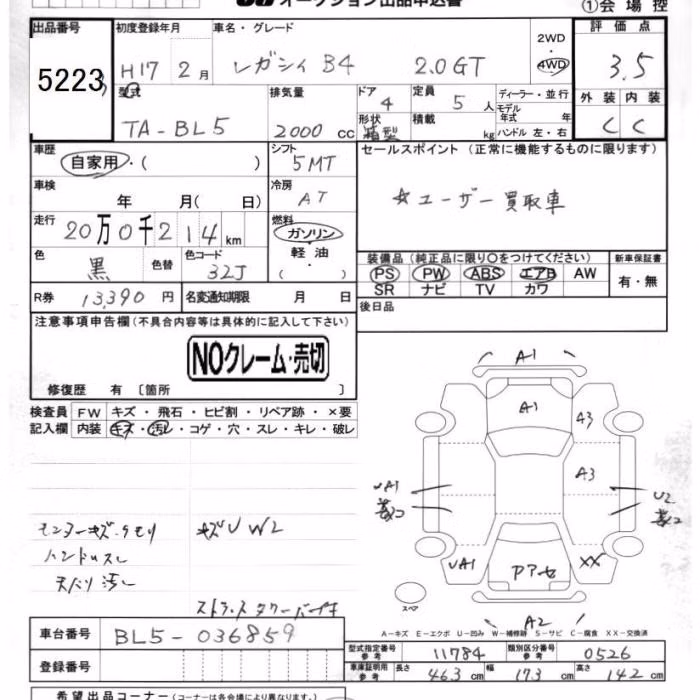 オークション出品申込書
①会場控
出品番号 初度登録年月 車名・グレード 2WD 4WD 評価点
5223 H17 2月 レガシィ B4 2.0GT 3.5
型式 排気量 ドア 4 定員 5 人 ディーラー・並行 外装 内装
TA-BL5 2000 cc 形状 箱型 積載 kg モデル年式 年 ハンドル 左・右 C C
車歴 自家用・( ) シフト 5MT セールスポイント (正常に機能するものに限ります)
車検 年 月( 日) 冷房 AT ☆ユーザー買取車
走行 20万0千214km 燃料 ガソリン・軽油・( )
色 黒 色替 色コード 32J
装備品 (純正品に限り○をつけてください) 新車保証書
PS PW ABS エアB AW 有・無
SR ナビ TV カワ
R券 13,390円 名変通知期限 月 日 後日品
注意事項申告欄 (不具合内容等は具体的に記入して下さい)
NOクレーム・売切
修復歴 有 〔箇所 〕
検査員 FW キズ・飛石・ヒビ割・リペア跡・×要
記入欄 内装 キズ・汚レ・コゲ・穴・スレ・キレ・破レ
A1
A1 A3
A3
UA1 U2
UA1 ××
A2
スペア
キズU W2
ハンドルスレ
天バリ汚レ
ストラットタワーバー付キ
A-キズ E-エクボ U-凹み W-補修跡 S-サビ C-腐食 XX-交換済
車台番号 BL5-036859
型式指定番号 参考 11784 類別区分番号 参考 0526
登録番号 車庫証明用 参考 長さ 463 cm 幅 173 cm 高さ 142 cm
希望出品コーナー (コーナーは各会場により異なります。)